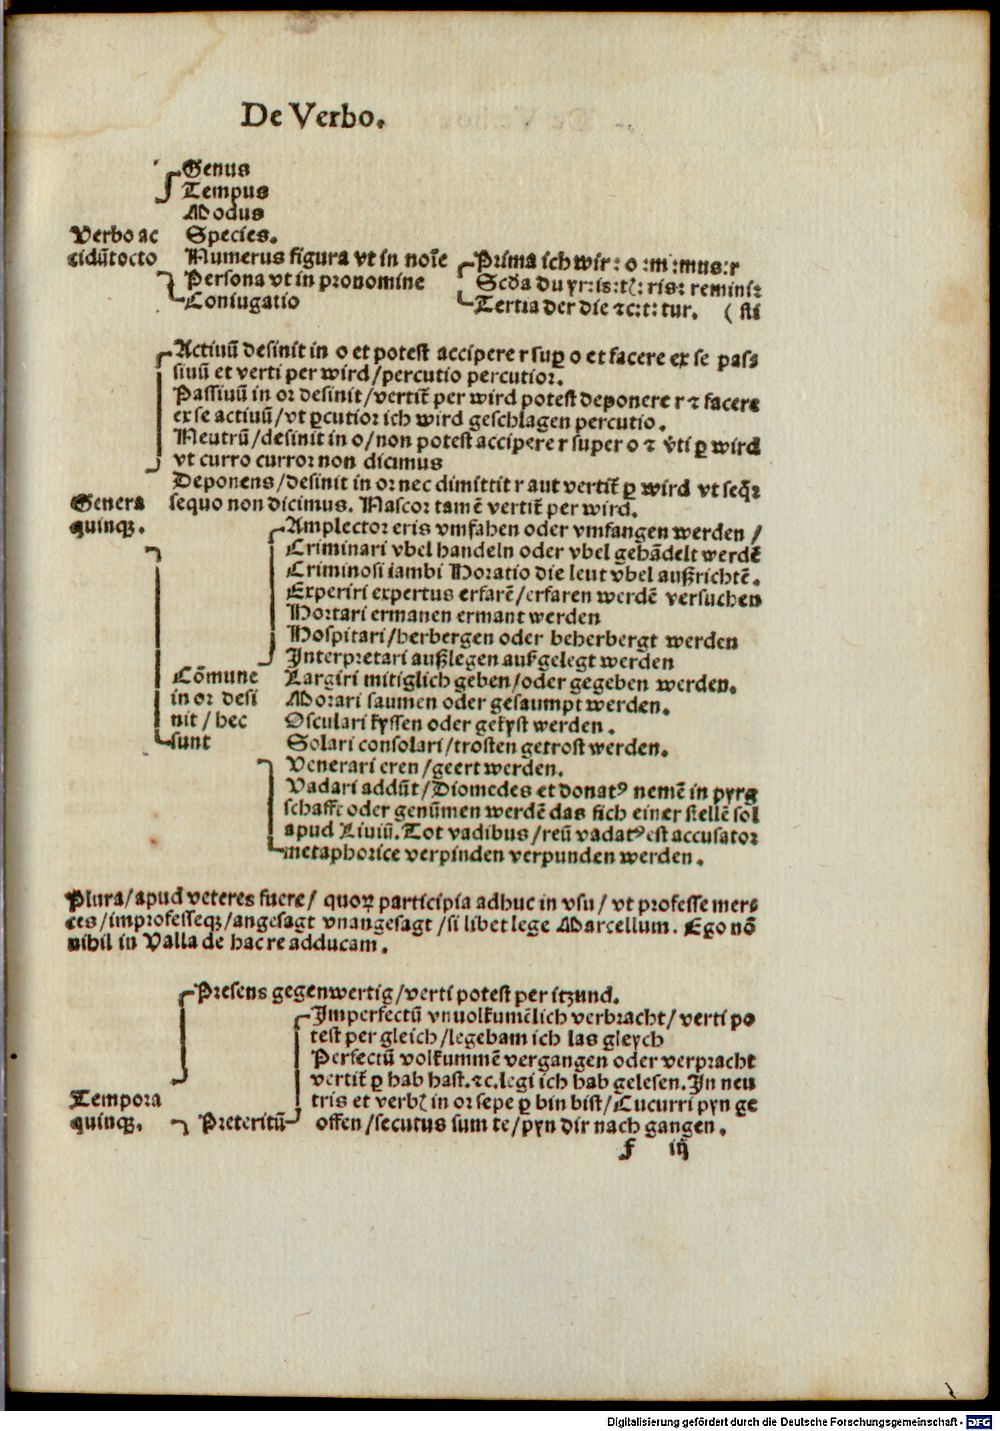 De Verbo.
Genus
Tempus
Modus
Verbo ac Species.
cidūt octo Numerus figura vt in noīe Prima ich wir: o :m :mus:r
Persona vt in pronomine Scd̄a du yr:is:tꝭ: ris: remini:
Coniugatio Tertia der die ⁊c:t: tur. ( sti
Actiuū desinit in o et potest accipere r suꝑ o et facere ex se pas:
siuū et verti per wird/percutio percutior.
Passiuū in or desinit/vertit̄ per wird potest deponere r ⁊ facere
ex se actiuū/vt ꝑcutior ich wird geschlagen percutio.
Neutrū/desinit in o/non potest accipere r super o ⁊ v̄ti ꝑ wird
vt curro curror non dicimus
Deponens/desinit in or nec dimittit r aut vertit̄ ꝑ wird vt seq̄r
Genera sequo non dicimus. Nascor tamē vertit̄ per wird.
quinqꝫ. Amplector eris vmfahen oder vmfangen werden /
Criminari vbel handeln oder vbel gehādelt werdē
Criminosi iambi Horatio die leut vbel außrichtē.
Experiri expertus erfarē/erfaren werdē versuchen
Hortari ermanen ermant werden
Hospitari/herbergen oder beherbergt werden
Interpretari außlegen aufgelegt werden
Cōmune Largiri mitiglich geben/oder gegeben werden.
in or desi Morari saumen oder gesaumpt werden.
nit / hec Osculari kyssen oder gekyst werden.
sunt Solari consolari/trosten getrost werden.
Venerari eren/geert werden.
Vadari addūt/Diomedes et donatꝰ nemē in pyrg
schafft oder genūmen werdē das sich einer stellē sol
apud Liuiū. Tot vadibus/reū vadatꝰ est accusator
metaphorice verpinden verpunden werden.
Plura/apud veteres fuere/ quoꝝ participia adhuc in vsu/ vt professe mer:
ces/improfesseqꝫ/angesagt vnangesagt/si libet lege Marcellum. Ego nō
nihil in Valla de hac re adducam.
Presens gegenwertig/verti potest per itzund.
Imperfectū vnuolkumēlich verbracht/ verti po
test per gleich/legebam ich las gleych
Perfectū volkummē vergangen oder verpracht
vertit̄ ꝑ hab hast.⁊c.legi ich hab gelesen.In neu
Tempora tris et verbꝭ in or sepe ꝑ bin bist/Cucurri pyn ge
quinqꝫ. Preteritū offen/secutus sum te/pyn dir nach gangen.
f iij
Digitalisierung gefördert durch die Deutsche Forschungsgemeinschaft - DFG